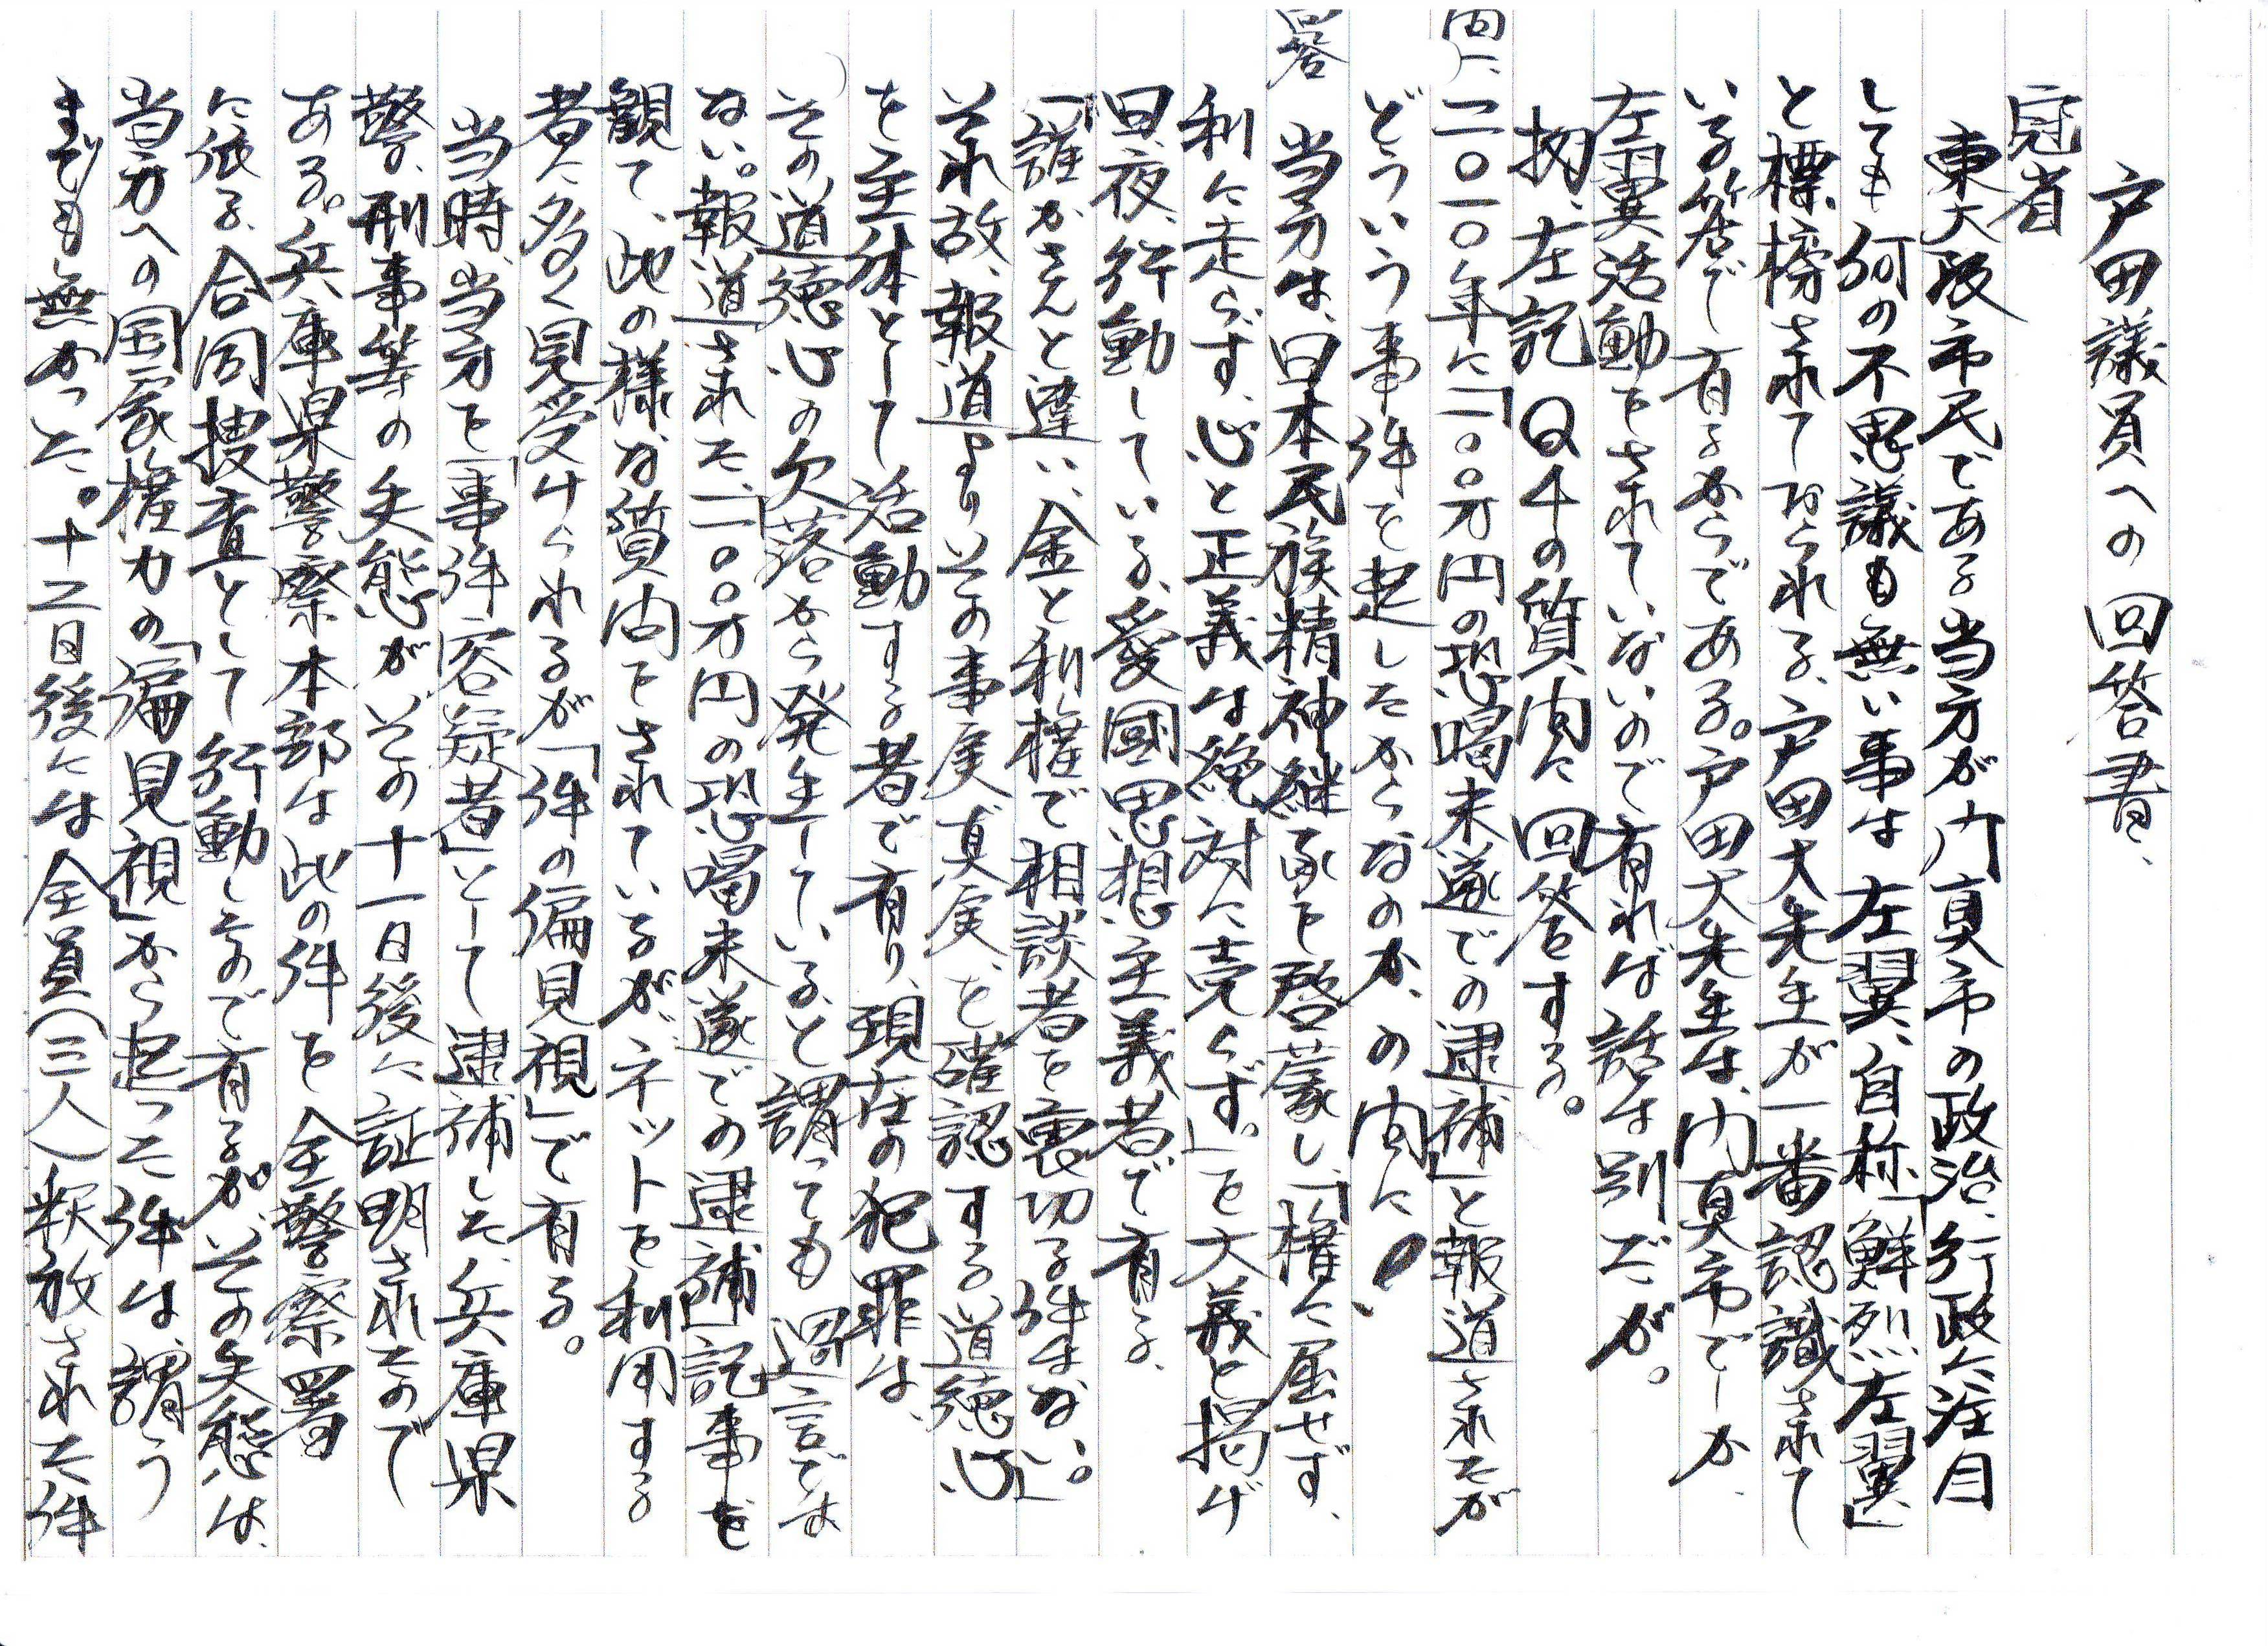 戸田議員への回答書、
冠省
東大阪市民である当方が門真市の政治、行政に注目
しても何の不思議も無い事は左翼、自称「鮮烈左翼」
と標榜されておられる、戸田大先生が一番認識されて
いる筈で有るからである。戸田大先生は、門真市でしか
左翼活動をされていないので有れば話は別だが。
扨、左記Q4の質問に回答する。
問に、二〇一〇年に「一〇〇万円の恐喝未遂での逮補」と報道されたが
どういう事件を起したからなのか、の問に、
回答 当方は、日本民族精神継承を啓蒙し、「権に屈せず、
利に走らず、心と正義は絶対に売らず。」を大義と掲げ
日、夜、行動している、愛國思想主義者で有る、
「誰かさんと違い、金と利権で相談者を裏切る件はない。」
それ故、報道よりその事実、真実、を確認する道徳心
を主体として活動する者で有り、現在の犯罪は、
その道徳心の欠落から発生している、と謂っても過言では
ない。報道された、「一〇〇万円の恐喝未遂での逮補」記事を
観て、此の様な質問をされているが、ネットを利用する
者に多く見受けられるが「件の偏見視」で有る。
当時、当方を「事件容疑者」として逮補した、兵庫県
警、刑事等の失態が、その十一日後に証明されたので
ある。兵庫県警察本部は此の件を全警察署
に依る、合同捜査として行動したので有るが、その失態は、
当方への国家権力の「偏見視」から起った件は、謂う
までも無かった。十二日後には全員(三人)釈放された件